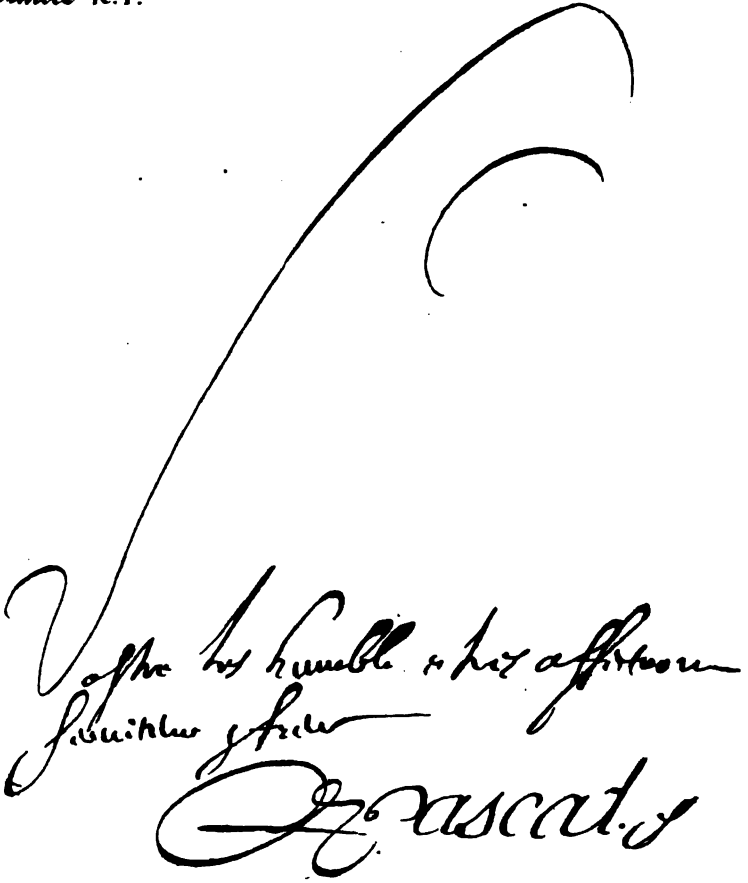 Vostre tres humble et tres affectionne
serviteur et frere
Pascal.